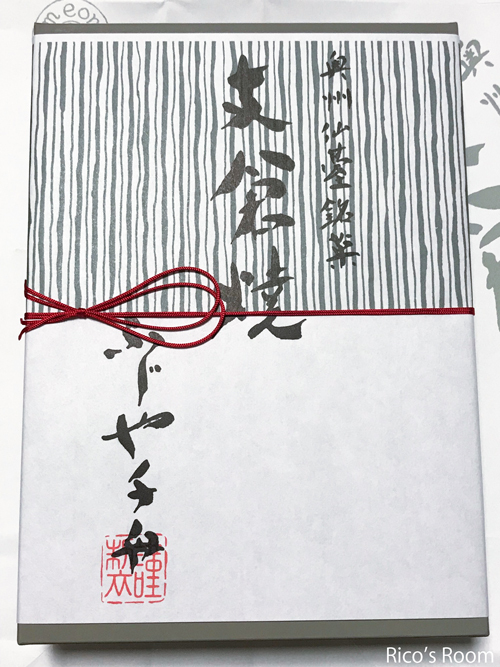 奥州仙臺銘菓
支倉焼
ふじや千舟
奥州
Rico's Room